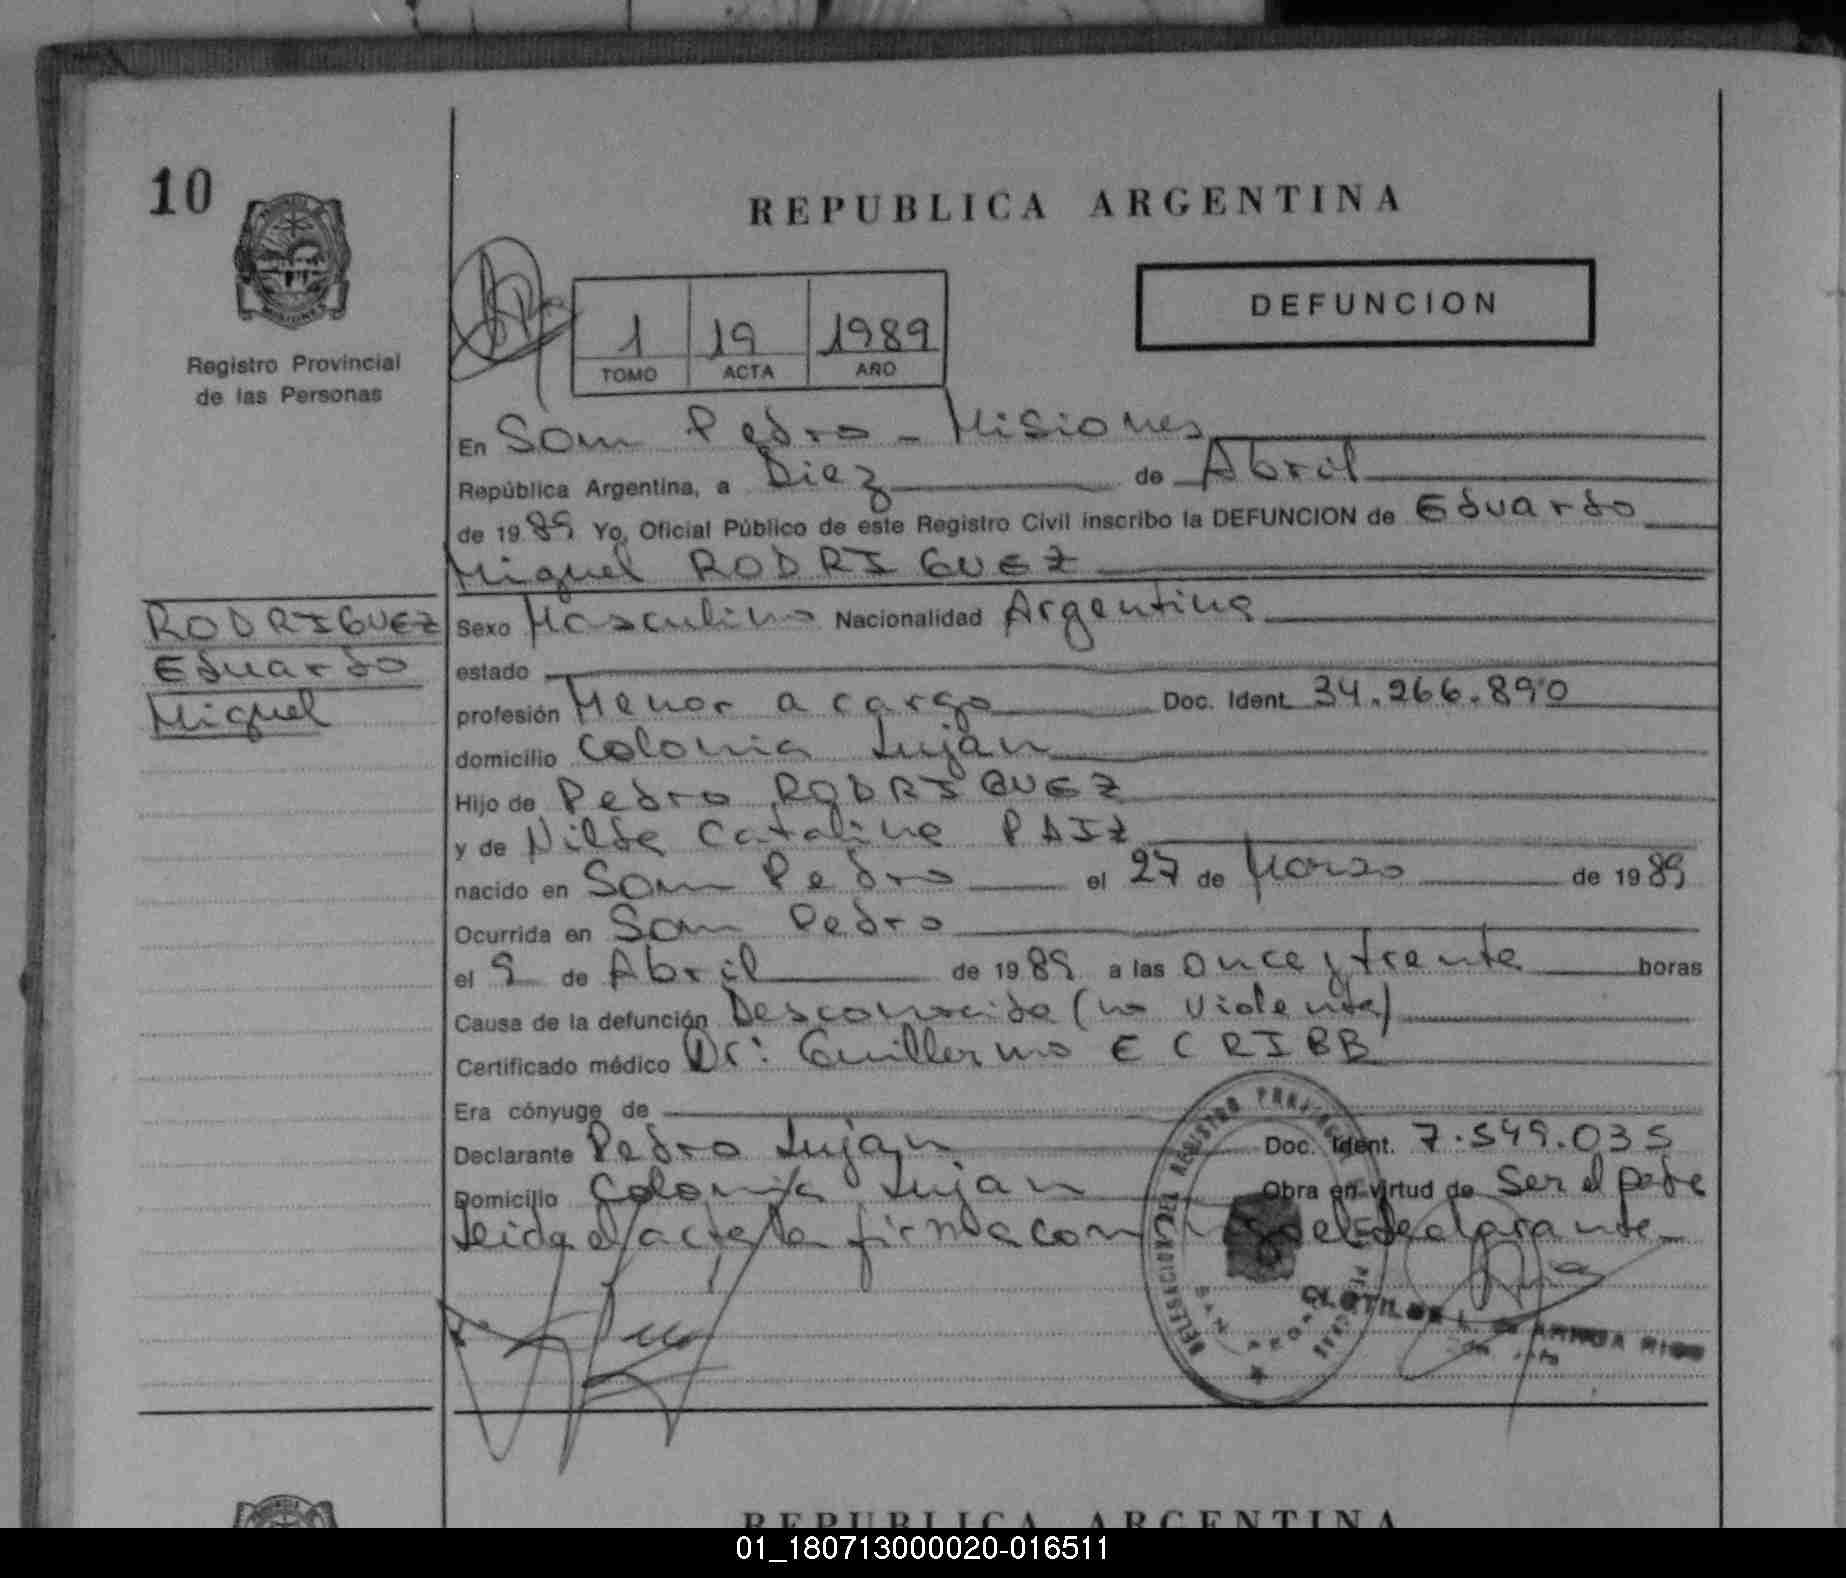 10
REPUBLICA ARGENTINA
DEFUNCION
Registro Provincial
de las Personas
1 19 1989
TOMO ACTA AÑO
En San Pedro - Misiones
República Argentina, a Diez de Abril
de 1989 Yo, Oficial Público de este Registro Civil inscribo la DEFUNCION de Eduardo
Miguel RODRIGUEZ
RODRIGUEZ
Eduardo
Miguel
Sexo Masculino Nacionalidad Argentina
estado
profesión Menor a cargo Doc. Ident. 34.266.890
domicilio Colonia Luján
Hijo de Pedro RODRIGUEZ
y de Nilda Catalina PAIZ
nacido en San Pedro el 27 de Marzo de 1989
Ocurrida en San Pedro
el 9 de Abril de 1989 a las once y treinta horas
Causa de la defunción Desconocida (no violenta)
Certificado médico Dr: Guillermo E CRIBB
Era cónyuge de
Declarante Pedro Luján Doc. Ident. 7.549.035
Domicilio Colonia Luján Obra en virtud de Ser el padre
Leida el acta la firma conmigo el declarante
DELEGACION DEL REGISTRO PROVINCIAL DE LAS PERSONAS
SAN PEDRO
REPUBLICA ARGENTINA
01_180713000020-016511